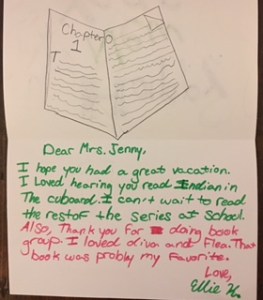 Chapter
1
T
Dear Mrs. Jenny,
I hope you had a great vacation.
I Loved hearing you read Indian in
The cuboard. I can't wait to read
the rest of the series at School.
Also, Thank you for doing book
group. I loved diva and Flea. That
book was probly my Favorite.
Love,
Ellie H.